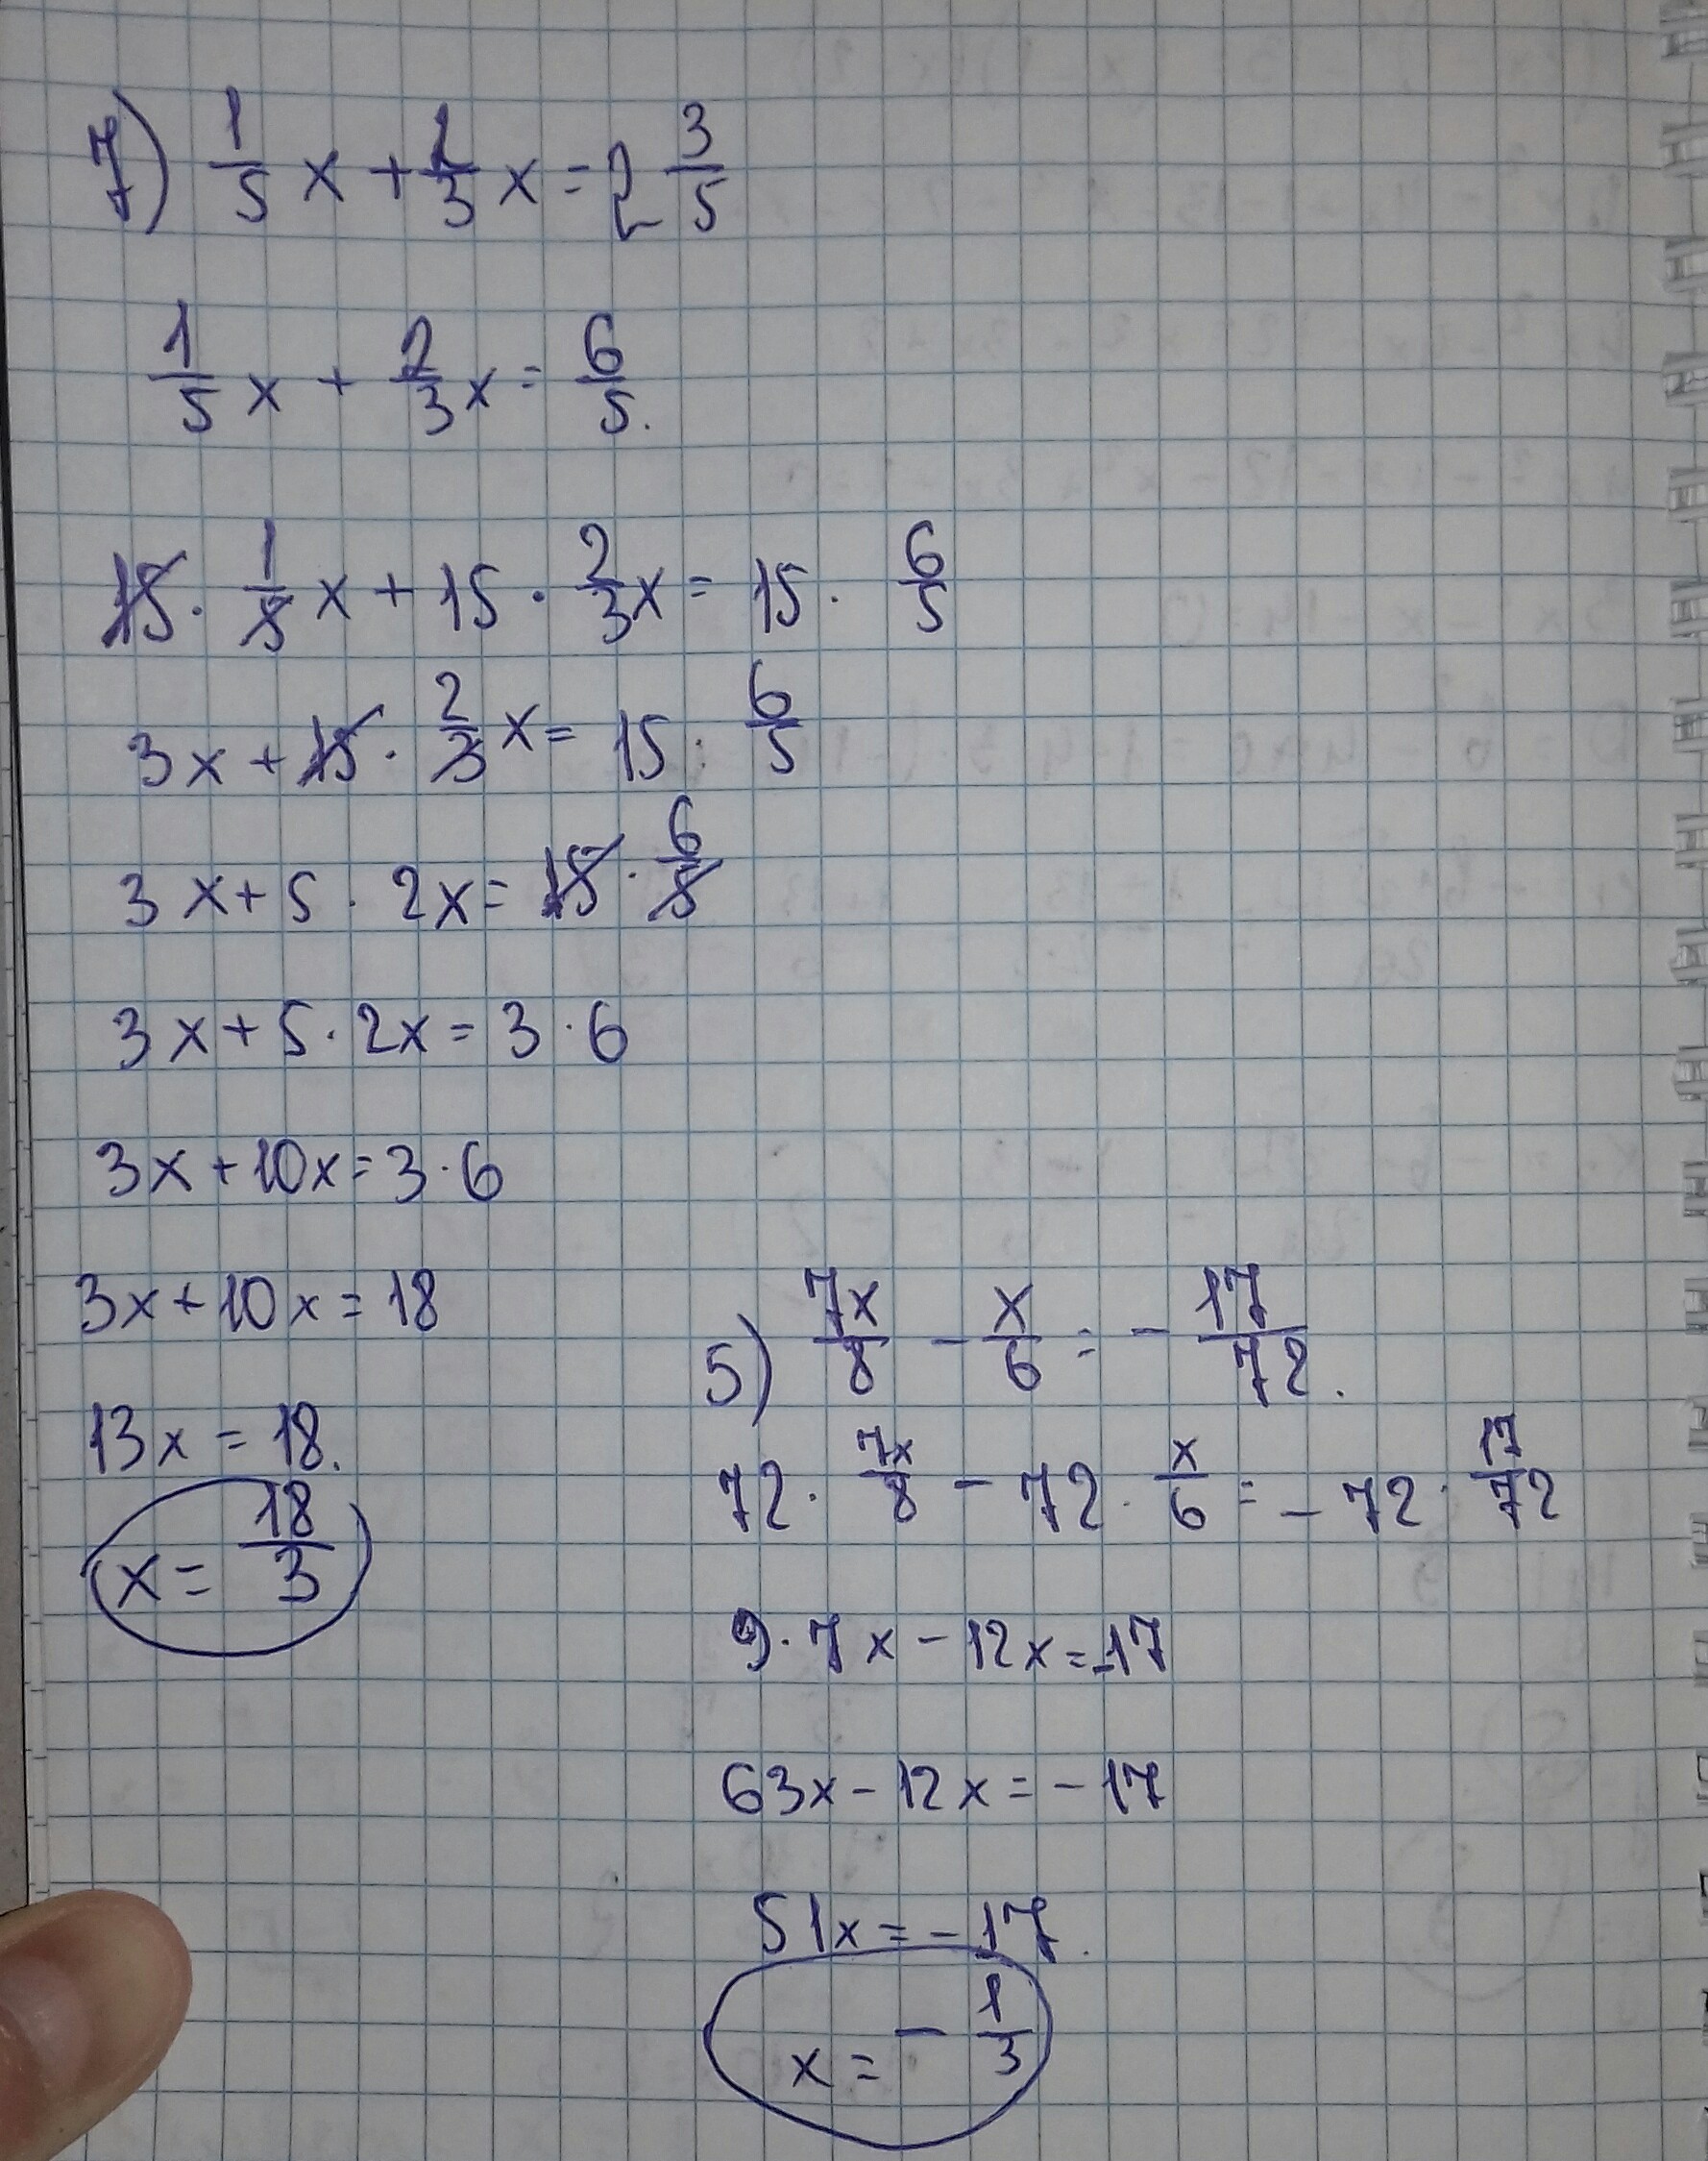 7) 1/5 x + 2/3 x = 2 3/5
1/5 x + 2/3 x = 6/5.
15 · 1/5 x + 15 · 2/3 x = 15 · 6/5
3x + 15 · 2/3 x = 15 · 6/5
3x + 5 · 2x = 15 · 6/5
3x + 5 · 2x = 3 · 6
3x + 10x = 3 · 6
3x + 10x = 18
13x = 18.
x = 18/3
5) 7x/8 - x/6 = - 17/72.
72 · 7x/8 - 72 · x/6 = - 72 · 17/72
9 · 7x - 12x = -17
63x - 12x = - 17
51x = - 17.
x = - 1/3